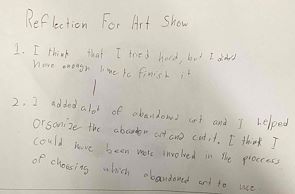 Reflection For Art Show
1. I think that I tried hard, but I didnt
have enough time to finish it
2. I added alot of abandoned art and I helped
organize the abandon art and cut it. I think I
could have been more involved in the proccess
of choosing which abandoned art to use